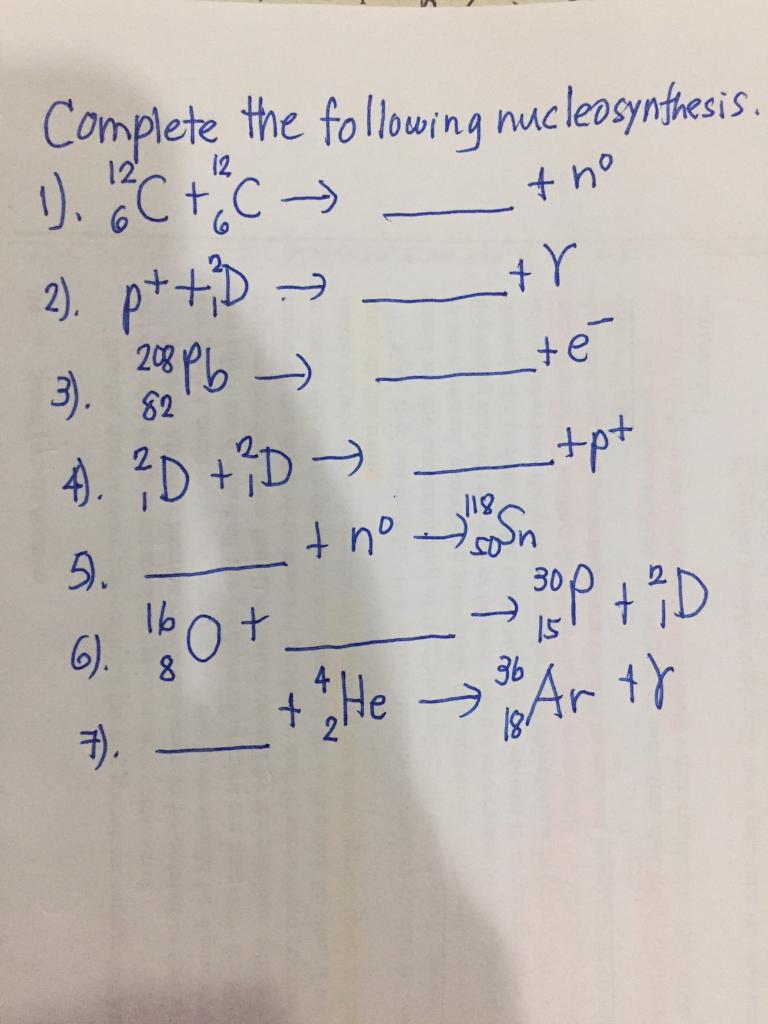 Complete the following nucleosynthesis.
1). ¹²₆C + ¹²₆C → ______ + n⁰
2). p⁺ + ²₁D → ______ + γ
3). ²⁰⁸₈₂Pb → ______ + e⁻
4). ²₁D + ²₁D → ______ + p⁺
5). ______ + n⁰ → ¹¹⁸₅₀Sn
6). ¹⁶₈O + ______ → ³⁰₁₅P + ²₁D
7). ______ + ⁴₂He → ³⁶₁₈Ar + γ